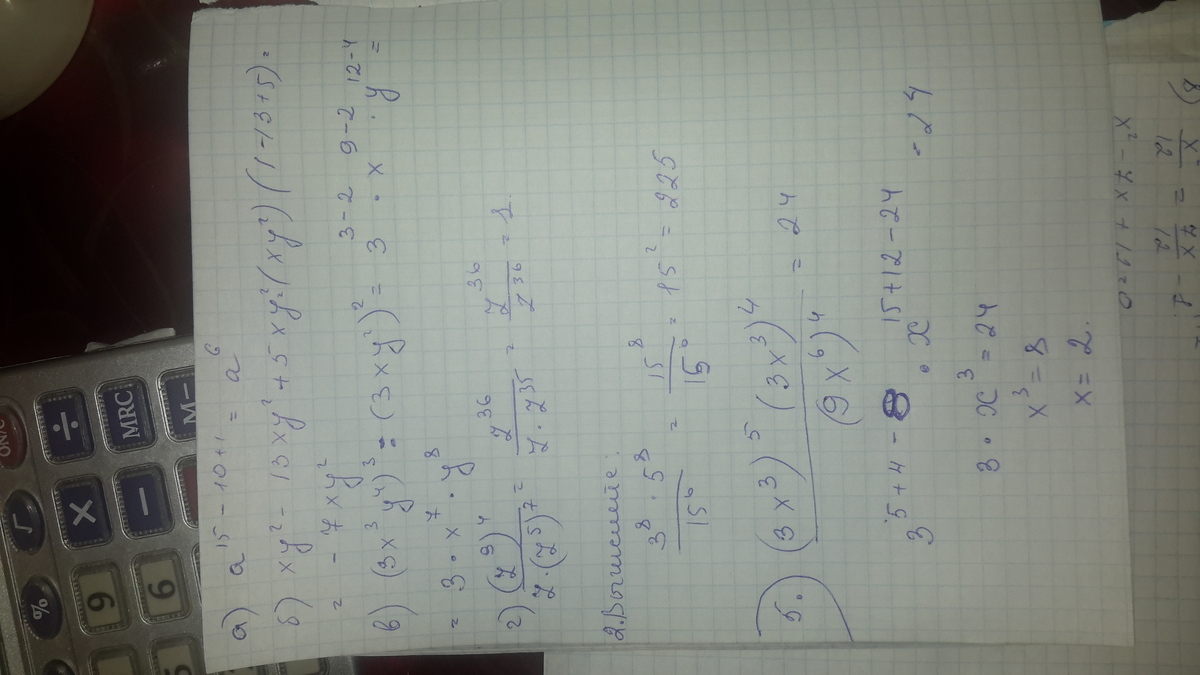 а) a^{15-10+1} = a^6
б) xy² - 13xy² + 5xy² = (xy²)(1-13+5) =
= -7xy²
в) (3x³y⁴)³ : (3xy²)² = 3^{3-2} · x^{9-2} · y^{12-4} =
= 3 · x⁷ · y⁸
г) (7⁹)⁴ / 7·(7⁵)⁷ = 7³⁶ / 7·7³⁵ = 7³⁶ / 7³⁶ = 1.
2. Вычислите:
3⁸ · 5⁸ / 15⁶ = 15⁸ / 15⁶ = 15² = 225
5. (3x³)⁵ (3x³)⁴ / (9x⁶)⁴ = 24
3^{5+4-8} · x^{15+12-24} = 24
3 · x³ = 24
x³ = 8
x = 2.
x² - 7x + 12 = 0
7x / 12 = x / 12
ON/C
√
%
÷
×
9
MRC
-
6
M-
5